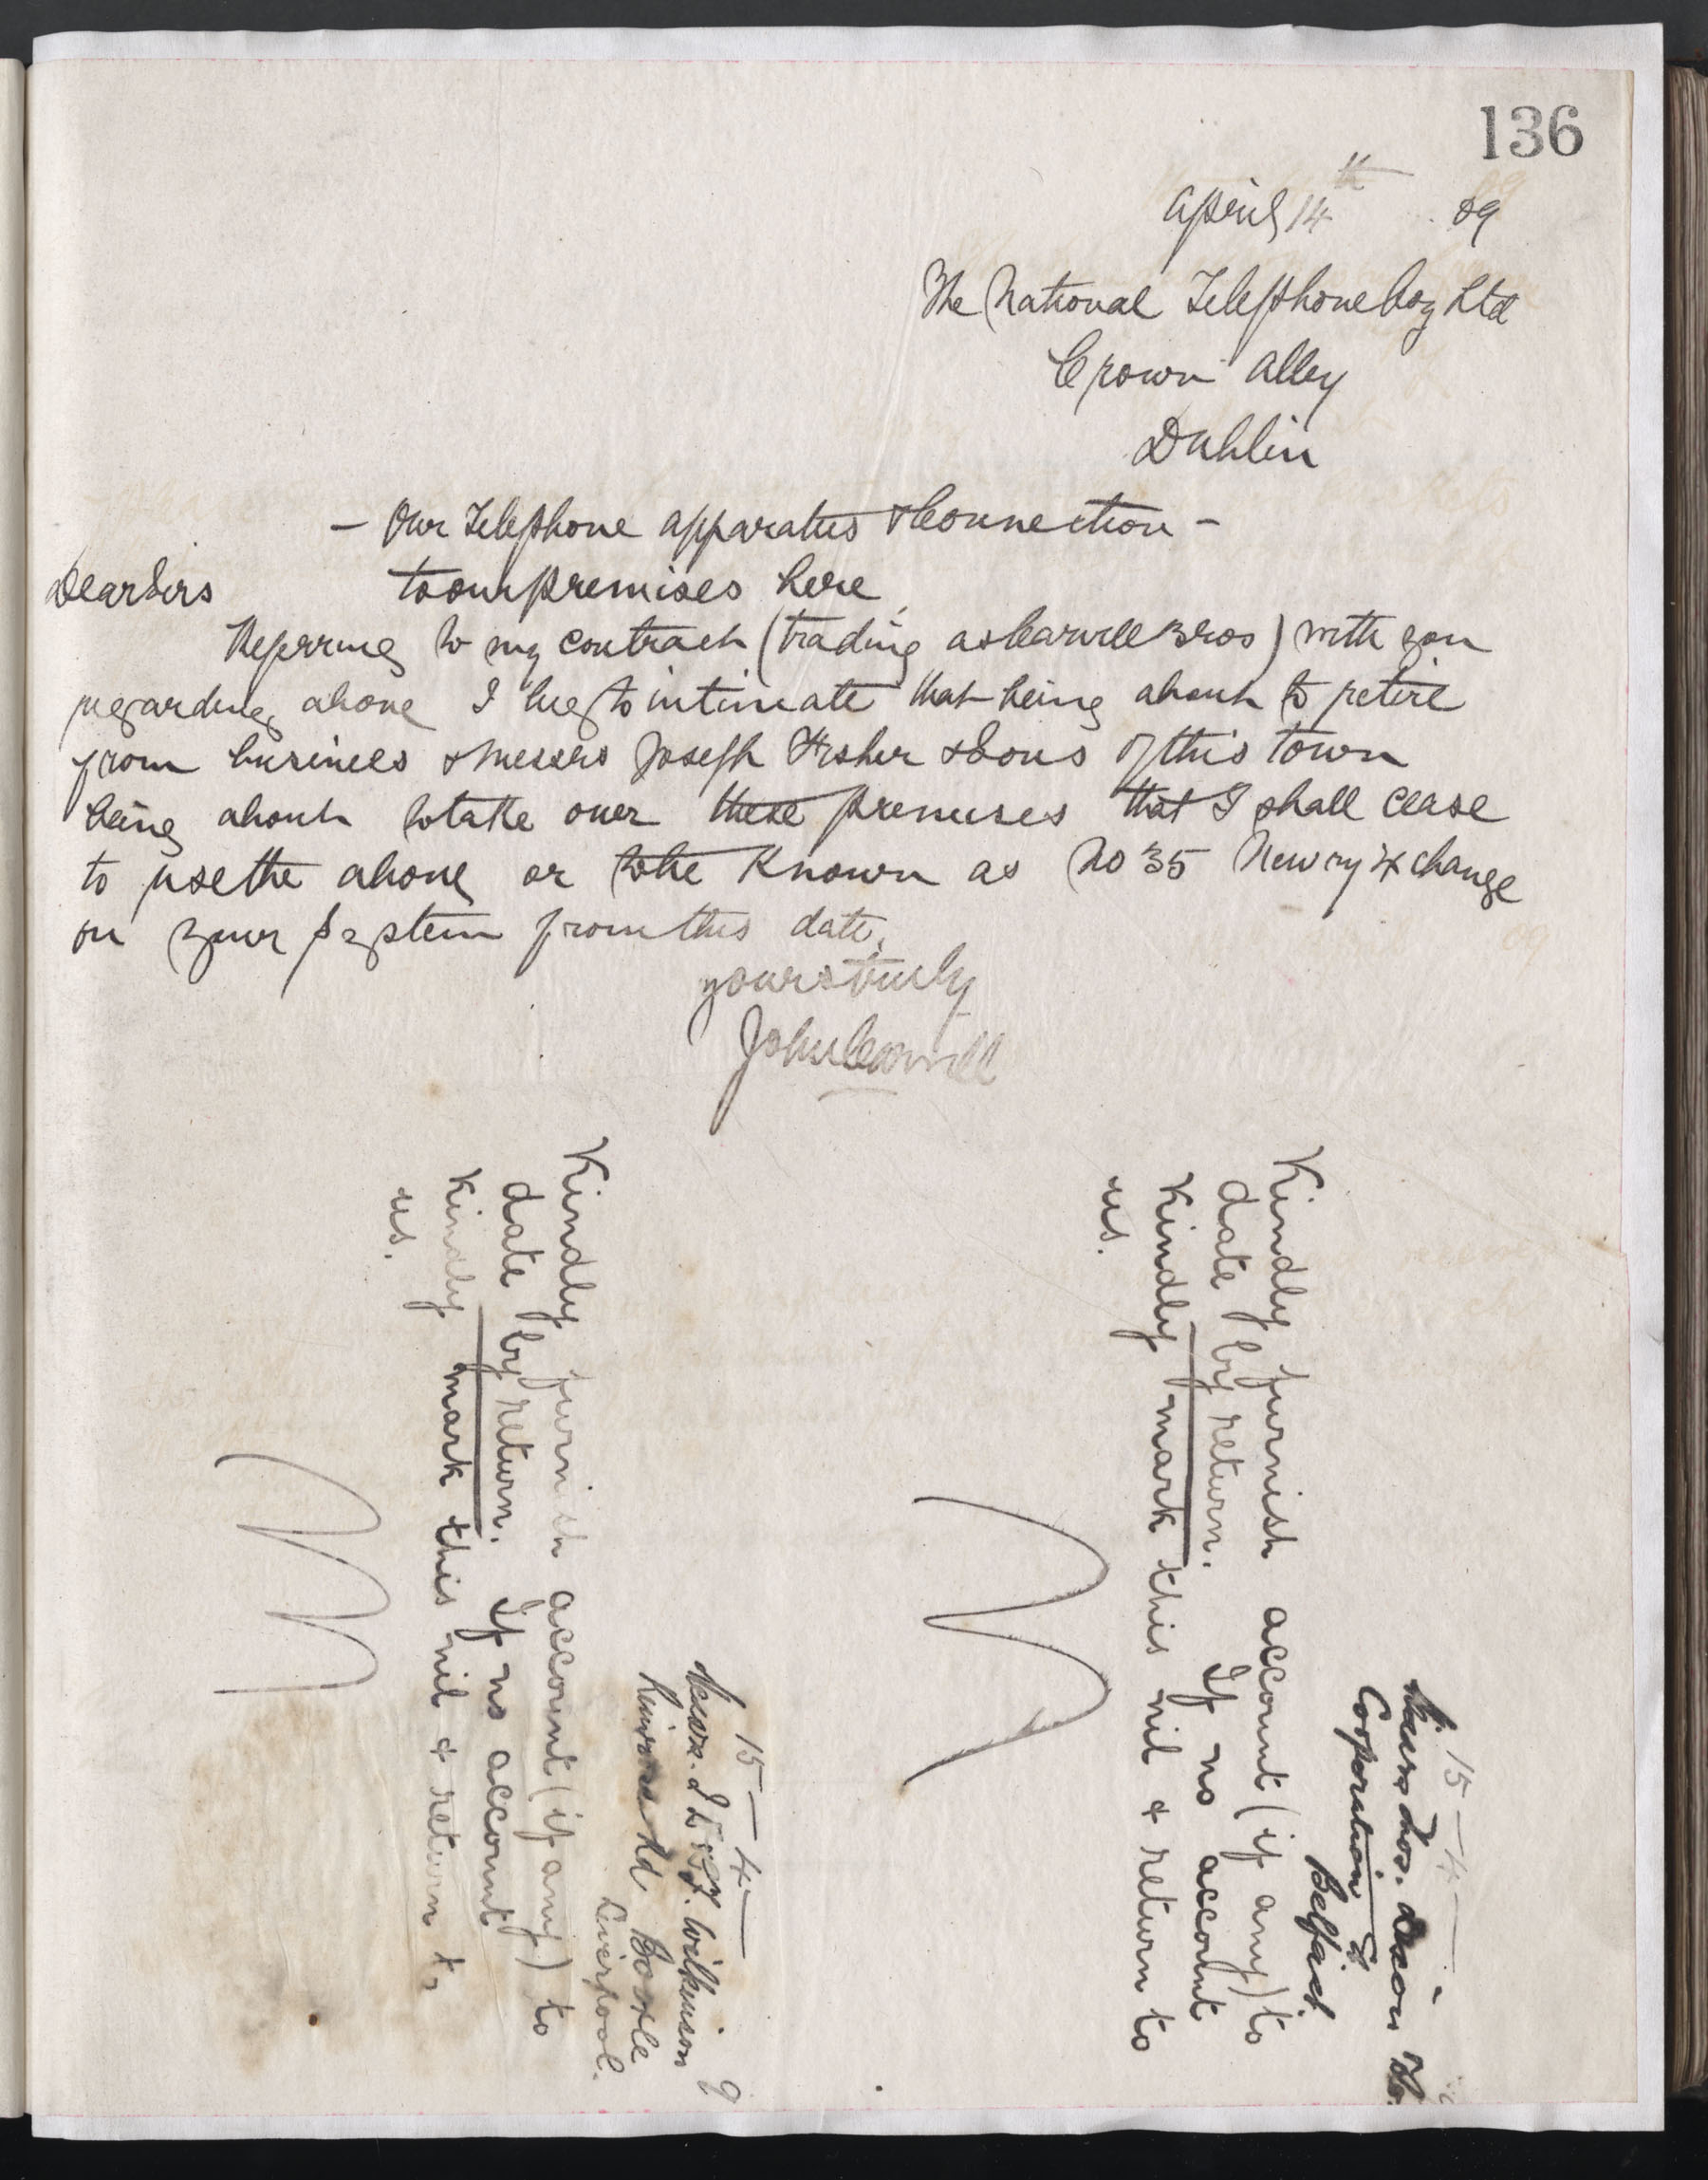 136
April 14th 09
The National Telephone Coy Ltd
Crown Alley
Dublin
- Our Telephone apparatus & Connection -
Dear Sirs to our premises here
Referring to my contract (trading as Carvill Bros) with you
regarding above I beg to intimate that being about to retire
from business & Messrs Joseph Fisher & Sons of this town
being about to take over these premises that I shall cease
to use the above or to be known as No 35 Newry Xchange
on your system from this date.
yours truly
John Carvill
15-4-
Messrs. Thos. Dixon
Corporation St
Belfast
Kindly furnish account (if any) to
date by return. If no account
kindly mark this nil & return to
us.
15-4- 9
Messrs. Wilkinson
Rd Bootle
Liverpool.
Kindly furnish account (if any) to
date by return. If no account
kindly mark this nil & return to
us.